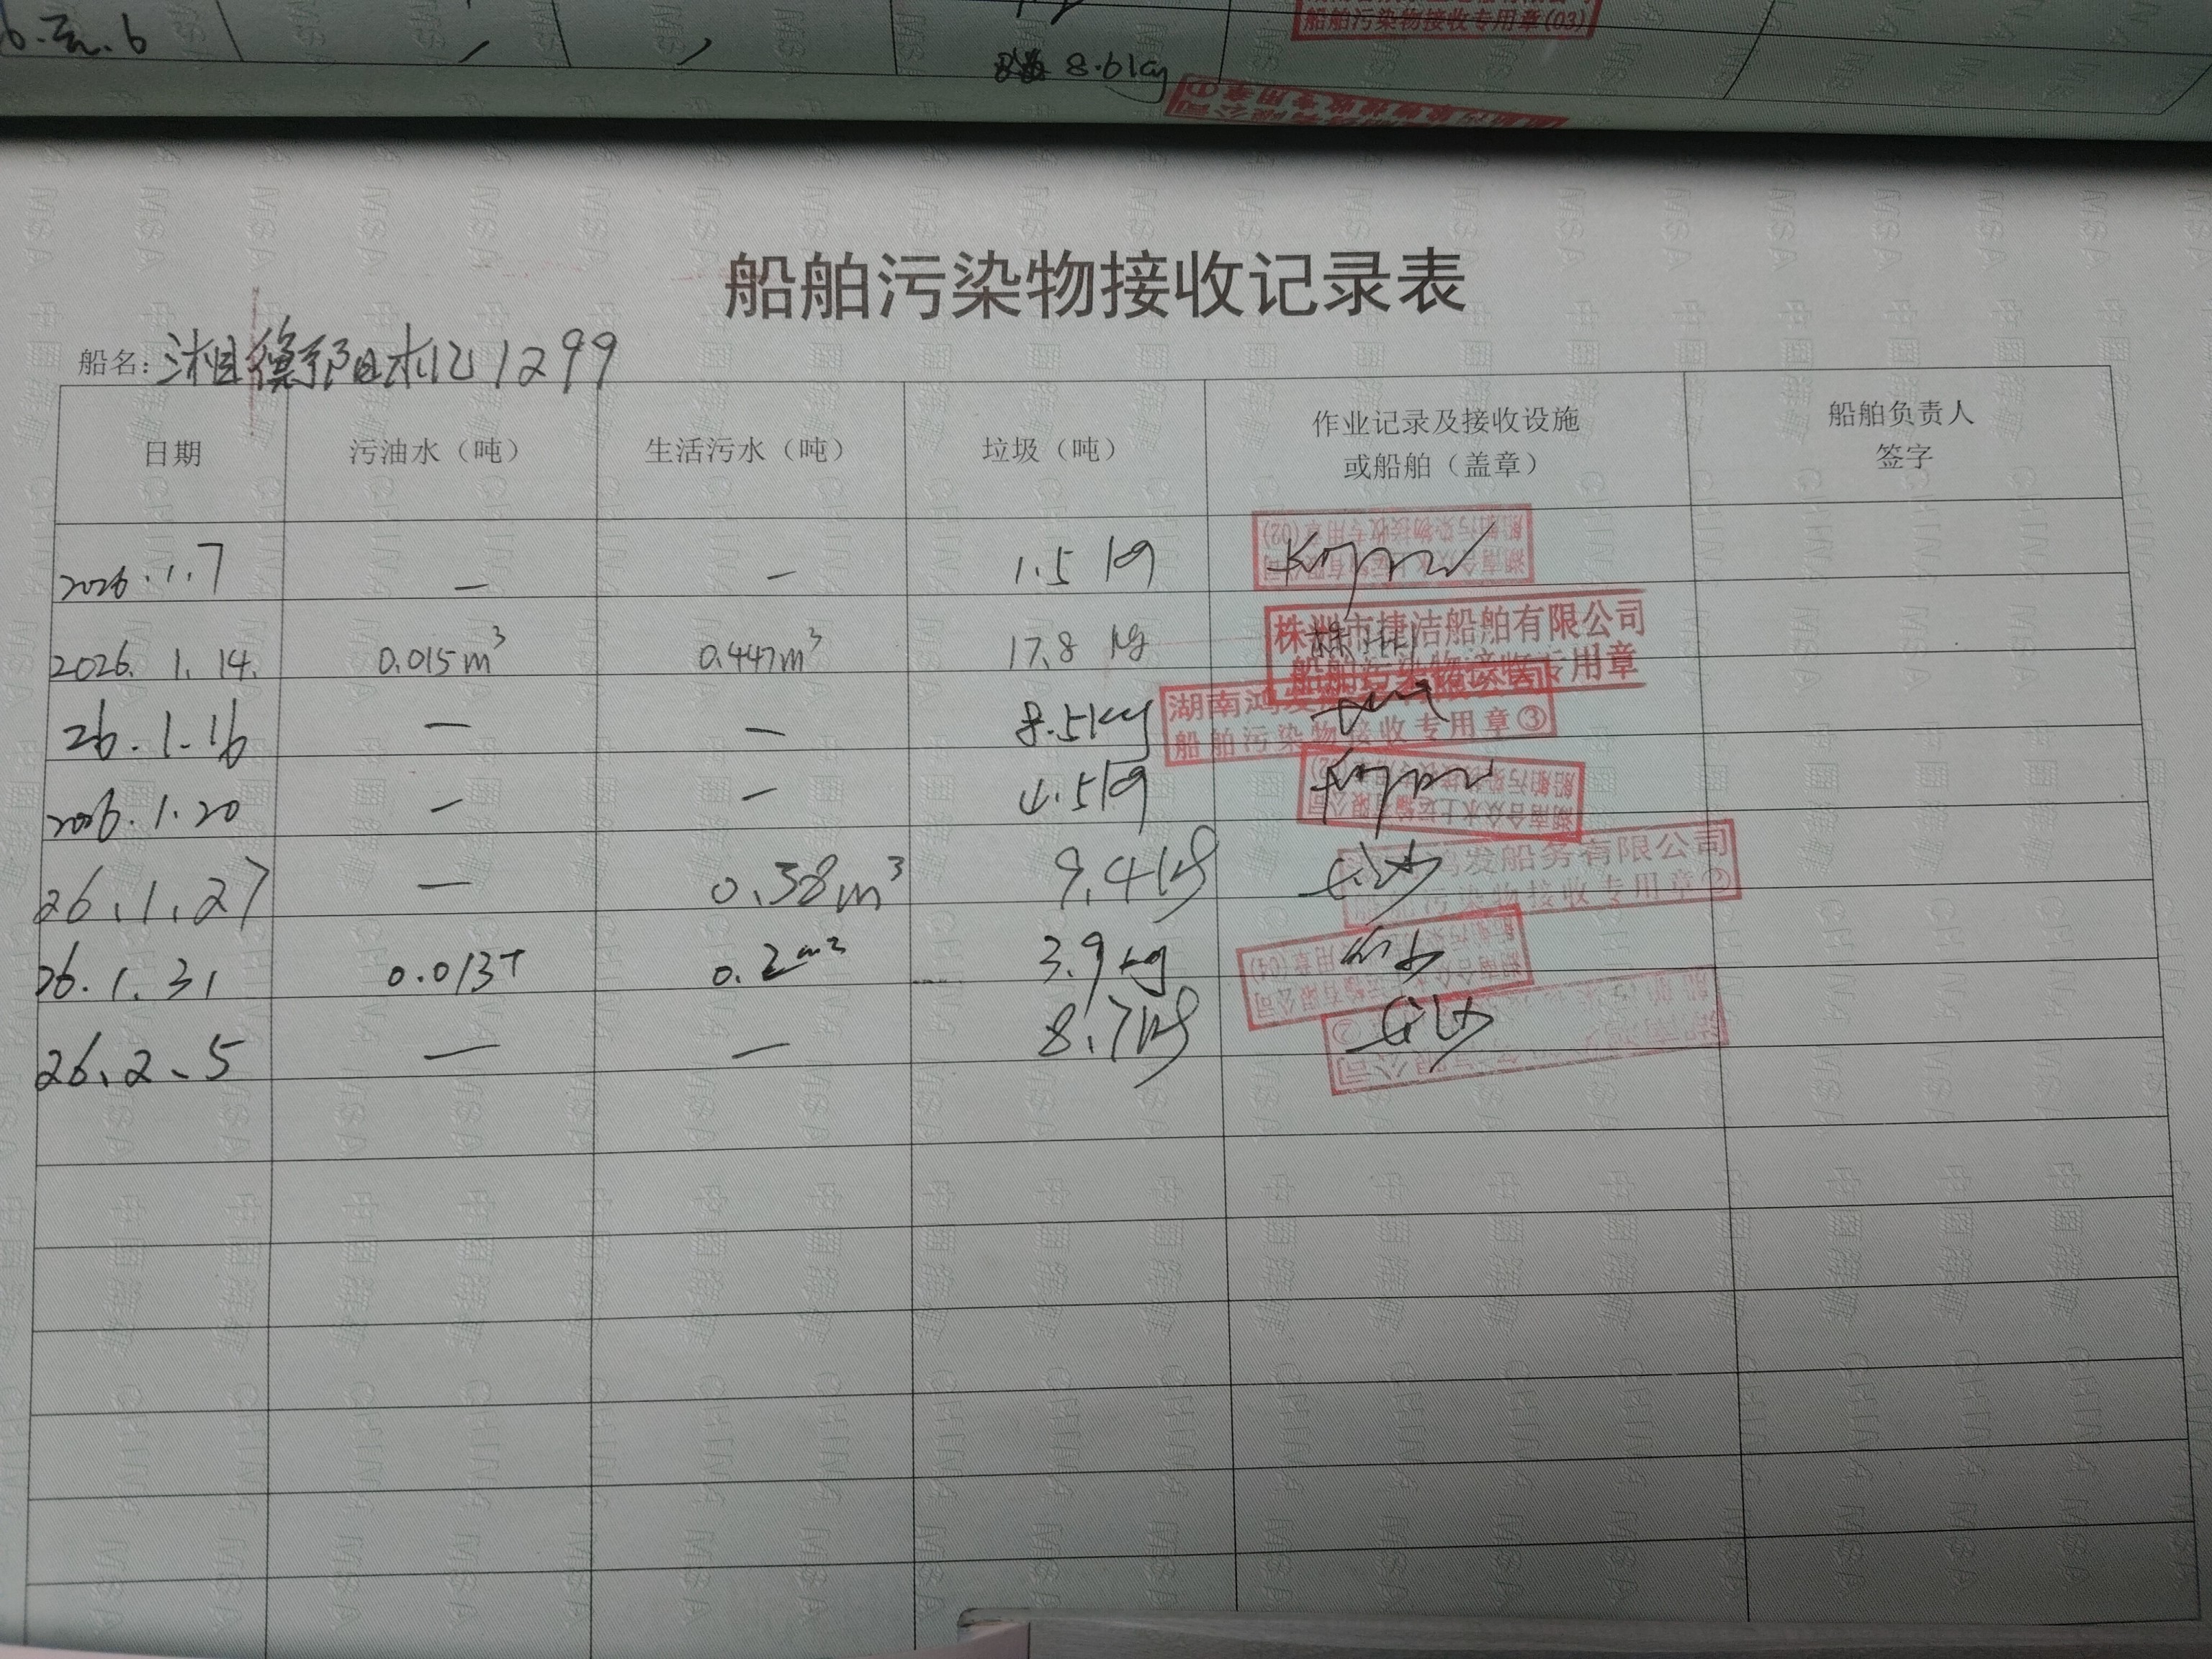 船舶污染物接收专用章(03)
8.6kg
船舶污染物接收记录表
船名: 湘衡阳机1299
日期 污油水（吨） 生活污水（吨） 垃圾（吨） 作业记录及接收设施或船舶（盖章） 船舶负责人签字
2026.1.7 — — 1.5 kg
船舶污染物接收专用章(02)
2026.1.14. 0.015m³ 0.447m³ 17.8 kg 株洲
株洲市捷洁船舶有限公司
船舶污染物接收专用章
26.1.16 — — 8.5kg
船舶污染物接收专用章③
2026.1.20 — — 4.5kg
湖南合众水上运输有限公司
26.1.27 — 0.38m³ 9.4kg 长沙
鸿发船务有限公司
船舶污染物接收专用章②
26.1.31 0.013T 0.2m³ 3.9kg 长沙
26.2.5 — — 8.7kg 长沙